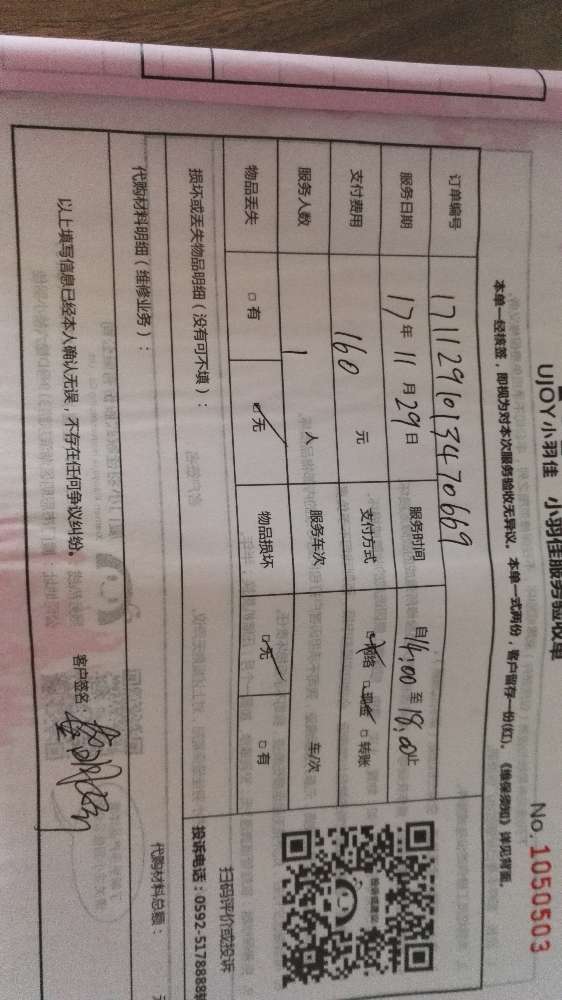 UJOY小羽佳 小羽佳服务验收单
No. 1050503
本单一经核签，即视为对本次服务验收无异议。本单一式两份，客户留存一份(红)。《维保须知》详见背面。
订单编号 1711291013470669
服务日期 17年11月29日 服务时间 自14:00至18:00止
支付费用 160 元 支付方式 □网络 □现金 □转账
服务人数 1 人 服务车次 车/次
物品丢失 □有 □无 物品损坏 □无 □有
损坏或丢失物品明细（没有可不填）：
扫码评价或投诉
投诉电话：0592-5178888转
代购材料明细（维修业务）：
代购材料总额：
以上填写信息已经本人确认无误，不存在任何争议纠纷。
客户签名：